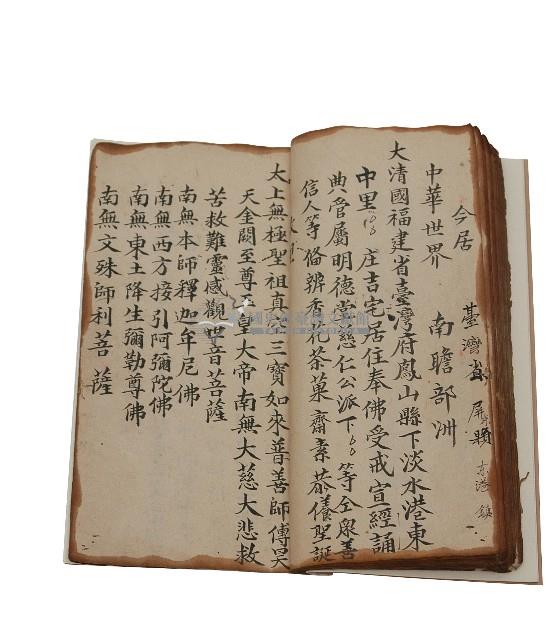 今居 臺灣省 屏縣 东港鎮
中華世界 南瞻部洲
大清國福建省臺灣府鳳山縣下淡水港東
中里 庄吉宅居住奉佛受戒宣經誦
典管屬明德堂慈仁公派下 等仝眾善
信人等俻辨香花茶菓齋素恭儀聖誕
太上無極聖祖真 三寶如來普善師傅昊
天金闕至尊玉皇大帝南無大慈大悲救
苦救難靈感觀世音菩薩
南無本師釋迦牟尼佛
南無西方接引阿彌陀佛
南無東土降生彌勒尊佛
南無文殊師利菩薩